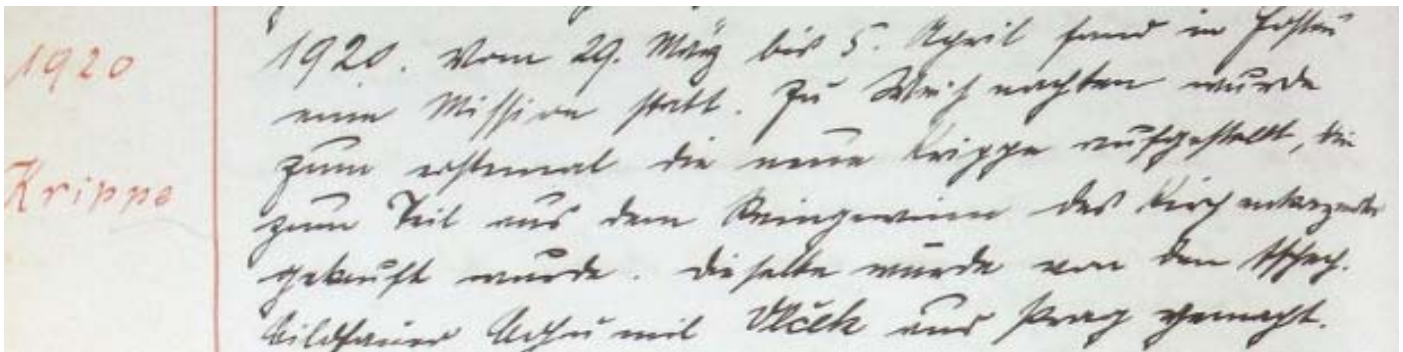 1920
Krippe
1920. Vom 29. März bis 5. April fand in
eine Mission statt. Zu Weihnachten wurde
zum erstenmal die neue Krippe aufgestellt, die
zum Teil aus dem Reingewinn des Kirchenkonzerts
gekauft wurde. Dieselbe wurde von dem tschech.
Bildhauer Vlček aus Prag gemacht.